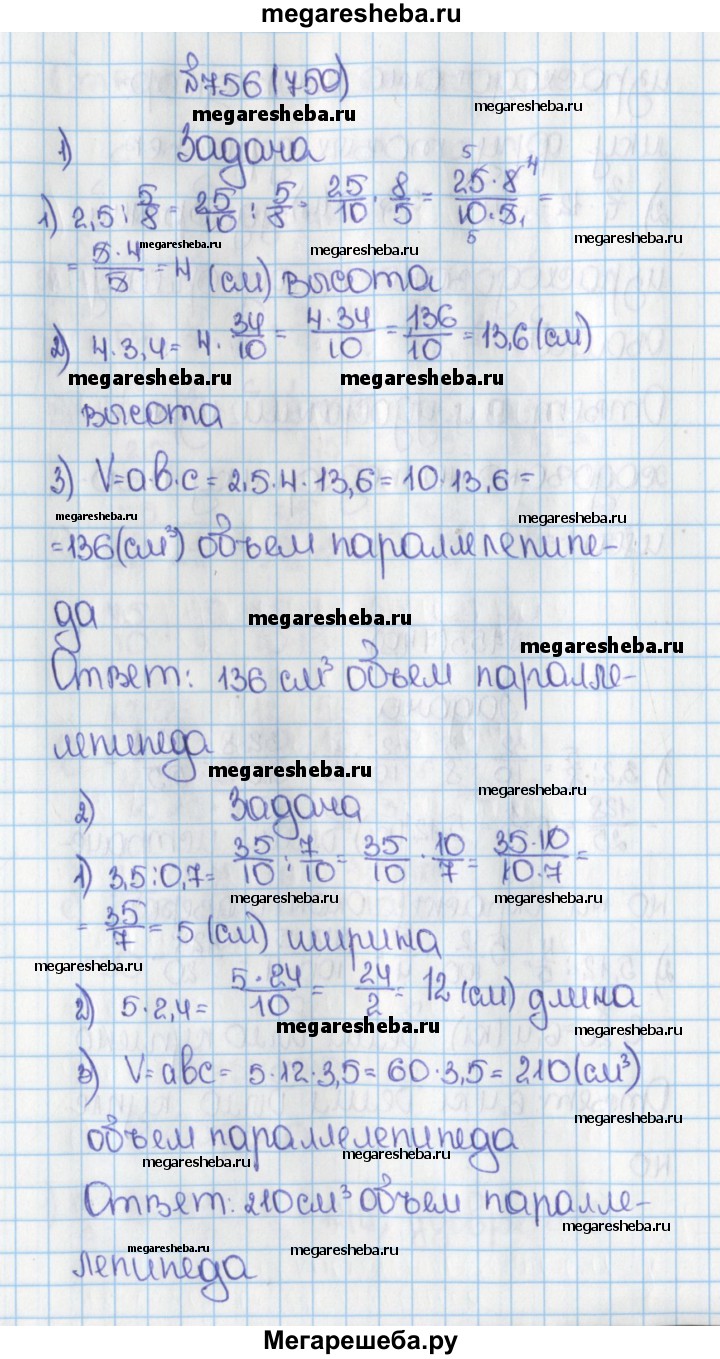 megaresheba.ru
№756(750)
megaresheba.ru
megaresheba.ru
1) Задача
1) 2,5 : 5/8 = 25/10 : 5/8 = 25/10 · 8/5 = 25·8/10·5 =
5 4
5 1
megaresheba.ru
megaresheba.ru
= 5·4/5 = 4 (см) высота
2) 4·3,4 = 4· 34/10 = 4·34/10 = 136/10 = 13,6 (см)
megaresheba.ru
megaresheba.ru
высота
3) V=a·b·c = 2,5·4·13,6 = 10·13,6 =
megaresheba.ru
megaresheba.ru
=136(см³) объем параллелепипе-
да
megaresheba.ru
megaresheba.ru
Ответ: 136 см³ объем паралле-
лепипеда
megaresheba.ru
megaresheba.ru
2) Задача
1) 3,5:0,7= 35/10 : 7/10 = 35/10 · 10/7 = 35·10/10·7 =
megaresheba.ru
megaresheba.ru
= 35/7 = 5 (см) ширина
megaresheba.ru
megaresheba.ru
2) 5·2,4= 5·24/10 = 24/2 = 12 (см) длина
megaresheba.ru
megaresheba.ru
3) V=abc= 5·12·3,5=60·3,5=210(см³)
megaresheba.ru
объем параллелепипеда
megaresheba.ru
megaresheba.ru
Ответ: 210см³ объем паралле-
megaresheba.ru
megaresheba.ru
megaresheba.ru
лепипеда
Мегарешеба.ру